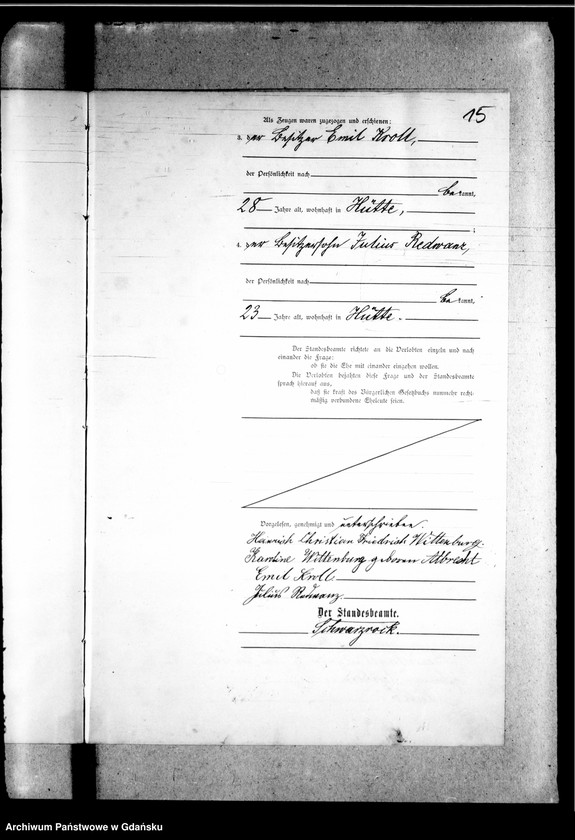 15
Als Zeugen waren zugezogen und erschienen:
3. der Besitzer Emil Kroll,
der Persönlichkeit nach
bekannt,
28 Jahre alt, wohnhaft in Hütte,
;
4. der Besitzersohn Julius Redwanz,
der Persönlichkeit nach
bekannt,
23 Jahre alt, wohnhaft in Hütte.
Der Standesbeamte richtete an die Verlobten einzeln und nach
einander die Frage:
ob sie die Ehe mit einander eingehen wollen.
Die Verlobten bejahten diese Frage und der Standesbeamte
sprach hierauf aus,
daß sie kraft des Bürgerlichen Gesetzbuchs nunmehr recht-
mäßig verbundene Eheleute seien.
Vorgelesen, genehmigt und unterschrieben.
Heinrich Christian Friedrich Wittenburg.
Karoline Wittenburg geboren Albrecht
Emil Kroll.
Julius Redwanz.
Der Standesbeamte.
Schwarzrock.
Archiwum Państwowe w Gdańsku